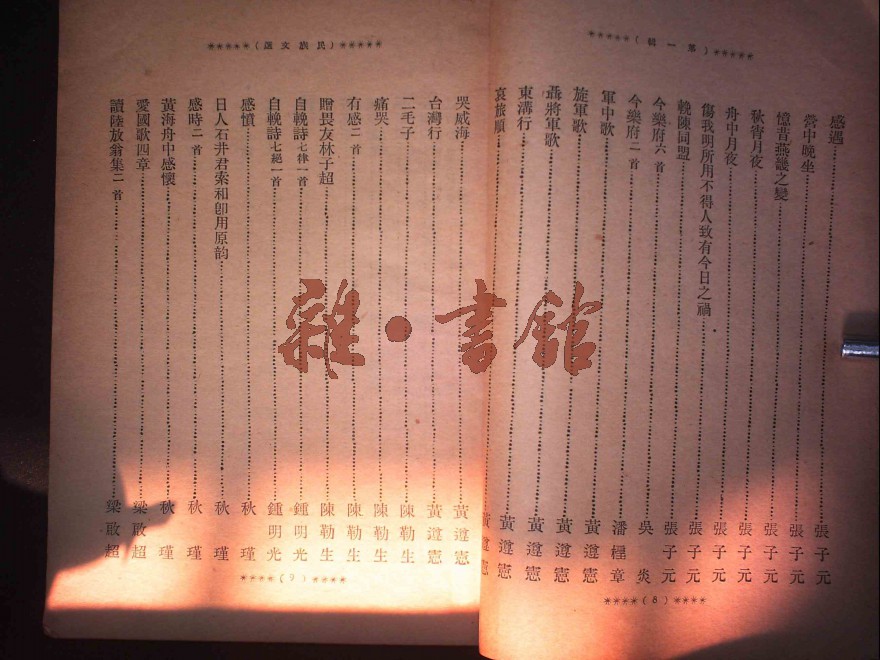 （第一輯）
感遇 張子元
營中晚坐 張子元
憶昔燕畿之變 張子元
秋宵月夜 張子元
舟中月夜 張子元
傷我明所用不得人致有今日之禍 張子元
輓陳同盟 張子元
今樂府六首 吳炎
今樂府二首 潘檉章
軍中歌 黃遵憲
旋軍歌 黃遵憲
聶將軍歌 黃遵憲
東溝行 黃遵憲
哀旅順 黃遵憲
（8）
（民族文選）
哭威海 黃遵憲
台灣行 黃遵憲
二毛子 陳勒生
痛哭 陳勒生
有感二首 陳勒生
贈畏友林子超 陳勒生
自輓詩七律一首 鍾明光
自輓詩七絕一首 鍾明光
感憤 秋瑾
日人石井君索和卽用原韵 秋瑾
感時二首 秋瑾
黃海舟中感懷 秋瑾
愛國歌四章 梁啟超
讀陸放翁集二首 梁啟超
（9）
雜·書館